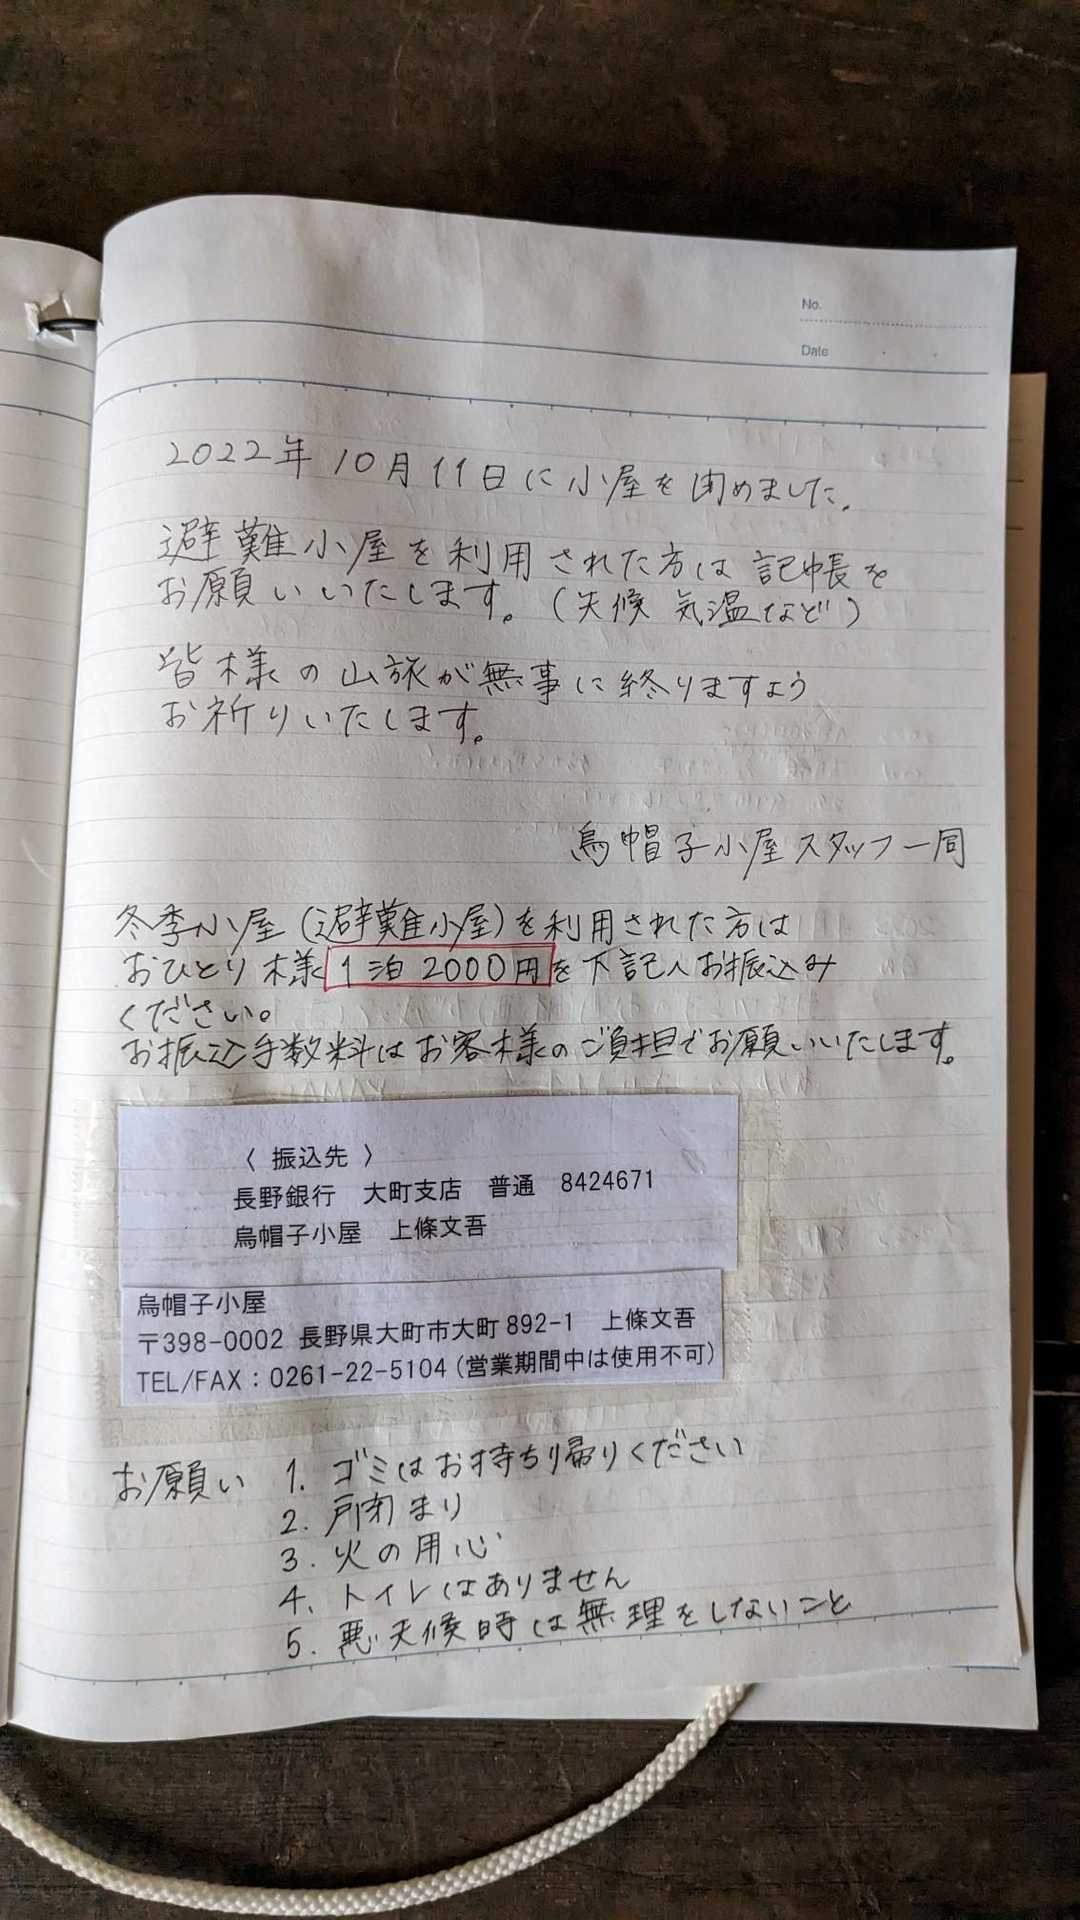 No.
Date
2022年10月11日に小屋を閉めました。
避難小屋を利用された方は記帳を
お願いいたします。(天候 気温など)
皆様の山旅が無事に終りますよう
お祈りいたします。
烏帽子小屋スタッフ一同
冬季小屋(避難小屋)を利用された方は
おひとり様1泊2000円を下記へお振込み
ください。
お振込手数料はお客様のご負担でお願いいたします。
〈 振込先 〉
長野銀行 大町支店 普通 8424671
烏帽子小屋 上條文吾
烏帽子小屋
〒398-0002 長野県大町市大町892-1 上條文吾
TEL/FAX:0261-22-5104(営業期間中は使用不可)
お願い 1. ゴミはお持ち帰りください
2. 戸閉まり
3. 火の用心
4. トイレはありません
5. 悪天候時は無理をしないこと